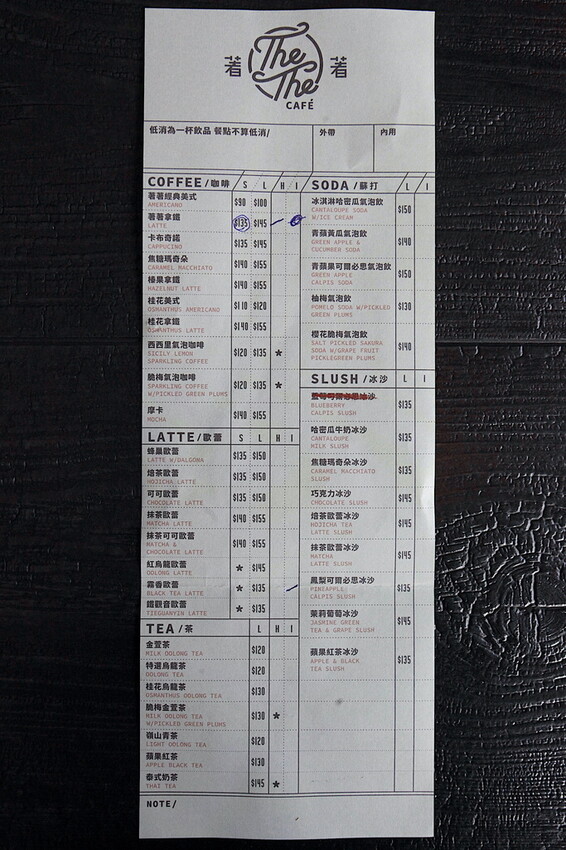 著 The The 著
CAFÉ
低消為一杯飲品 餐點不算低消/
外帶
內用
COFFEE/咖啡 S L H I
著著經典美式 $90 $100
AMERICANO
著著拿鐵 $135 $145
LATTE
卡布奇諾 $135 $145
CAPPUCINO
焦糖瑪奇朵 $140 $155
CARAMEL MACCHIATO
榛果拿鐵 $140 $155
HAZELNUT LATTE
桂花美式 $110 $120
OSMANTHUS AMERICANO
桂花拿鐵 $140 $155
OSMANTHUS LATTE
西西里氣泡咖啡 $120 $135 *
SICILY LEMON
SPARKLING COFFEE
脆梅氣泡咖啡 $120 $135 *
SPARKLING COFFEE
W/PICKLED GREEN PLUMS
摩卡 $140 $155
MOCHA
LATTE/歐蕾 S L H I
蜂巢歐蕾 $135 $150
LATTE W/DALGONA
焙茶歐蕾 $135 $150
HOJICHA LATTE
可可歐蕾 $135 $150
CHOCOLATE LATTE
抹茶歐蕾 $140 $155
MATCHA LATTE
抹茶可可歐蕾 $140 $155
MATCHA &
CHOCOLATE LATTE
紅烏歐蕾 * $145
OOLONG LATTE
霜香歐蕾 * $135
BLACK TEA LATTE
鐵觀音歐蕾 * $135
TIEGUANYIN LATTE
TEA/茶 L H I
金萱茶 $120
MILK OOLONG TEA
特選烏龍茶 $120
OOLONG TEA
桂花烏龍茶 $130
OSMANTHUS OOLONG TEA
脆梅金萱茶 $130 *
MILK OOLONG TEA
W/PICKLED GREEN PLUMS
嶺山青茶 $120
LIGHT OOLONG TEA
蘋果紅茶 $130
APPLE BLACK TEA
泰式奶茶 $145 *
THAI TEA
NOTE/
SODA/蘇打 L I
冰淇淋哈密瓜氣泡飲 $150
CANTALOUPE SODA
W/ICE CREAM
青蘋黃瓜氣泡飲 $140
GREEN APPLE &
CUCUMBER SODA
青蘋果可爾必思氣泡飲 $150
GREEN APPLE
CALPIS SODA
柚梅氣泡飲 $130
POMELO SODA W/PICKLED
GREEN PLUMS
櫻花脆梅氣泡飲 $140
SALT PICKLED SAKURA
SODA W/GRAPE FRUIT
PICKLEGREEN PLUMS
SLUSH/冰沙 L I
藍莓可爾必思冰沙 $135
BLUEBERRY
CALPIS SLUSH
哈密瓜牛奶冰沙 $135
CANTALOUPE
MILK SLUSH
焦糖瑪奇朵冰沙 $135
CARAMEL MACCHIATO
SLUSH
巧克力冰沙 $145
CHOCOLATE SLUSH
焙茶歐蕾冰沙 $145
HOJICHA TEA
LATTE SLUSH
抹茶歐蕾冰沙 $145
MATCHA
LATTE SLUSH
鳳梨可爾必思冰沙 $135
PINEAPPLE
CALPIS SLUSH
茉莉葡萄冰沙 $145
JASMINE GREEN
TEA & GRAPE SLUSH
蘋果紅茶冰沙 $135
APPLE & BLACK
TEA SLUSH